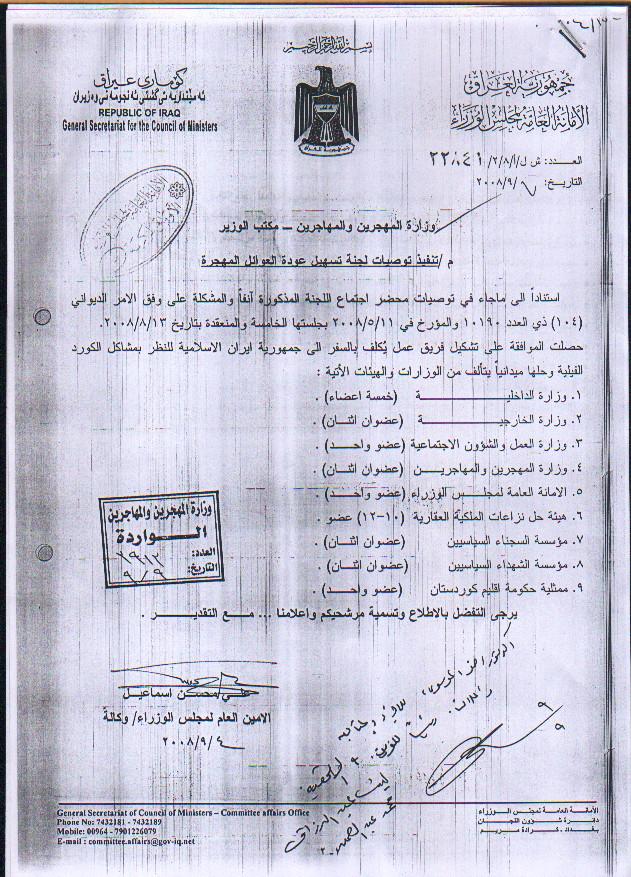 بسم الله الرحمن الرحيم
جمهورية العراق
الأمانة العامة لمجلس الوزراء
كۆماری عیراق
REPUBLIC OF IRAQ
General Secretariat for the Council of Ministers
العـدد: ش.ل/٢/٨/١/أ/٢٢٨٤١
التاريخ: ٢٠٠٨/٩/
وزارة المهجرين والمهاجرين – مكتب الوزير
م/ تنفيذ توصيات لجنة تسهيل عودة العوائل المهجرة
استناداً الى ماجاء في توصيات محضر اجتماع اللجنة المذكورة آنفاً والمشكلة على وفق الامر الديواني
(١٠٤) ذي العدد ١٠١٩٠ والمؤرخ في ٢٠٠٨/٥/١١ بجلستها الخامسة والمنعقدة بتاريخ ٢٠٠٨/٨/١٣.
حصلت الموافقة على تشكيل فريق عمل يُكلف بالسفر الى جمهورية ايران الاسلامية للنظر بمشاكل الكورد
الفيلية وحلها ميدانياً يتألف من الوزارات والهيئات الأتية :
١. وزارة الداخليـة (خمسة اعضاء) .
٢. وزارة الخارجيـة (عضوان اثنان) .
٣. وزارة العمل والشؤون الاجتماعية (عضو واحـد) .
٤. وزارة المهجرين والمهاجريـن (عضوان اثنان) .
٥. الامانة العامة لمجلـس الوزراء (عضو واحـد) .
٦. هيئة حل نزاعات الملكية العقارية (١٠-١٢) عضو .
٧. مؤسسة السجناء السياسيين (عضوان اثنان) .
٨. مؤسسة الشهداء السياسيين (عضوان اثنان) .
٩. ممثلية حكومة اقليم كوردستان (عضو واحـد) .
يرجى التفضل بالاطلاع وتسمية مرشحيكم واعلامنا ... مـع التقديـر .
وزارة المهجرين والمهاجرين
الـواردة
العدد:
التاريخ: ٩/٩
علي محسن اسماعيل
الامين العام لمجلس الوزراء/ وكالةً
٢٠٠٨/٩/٤
٩
٩
General Secretariat of Council of Ministers – Committee affairs Office
Phone No: 7432181 - 7432189
Mobile: 00964 - 7901226079
E-mail : committee.affairs@gov-iq.net
الأمانة العامة لمجلس الوزراء
دائـرة شـؤون اللجـان
بـغـداد . كـرادة مـريـم